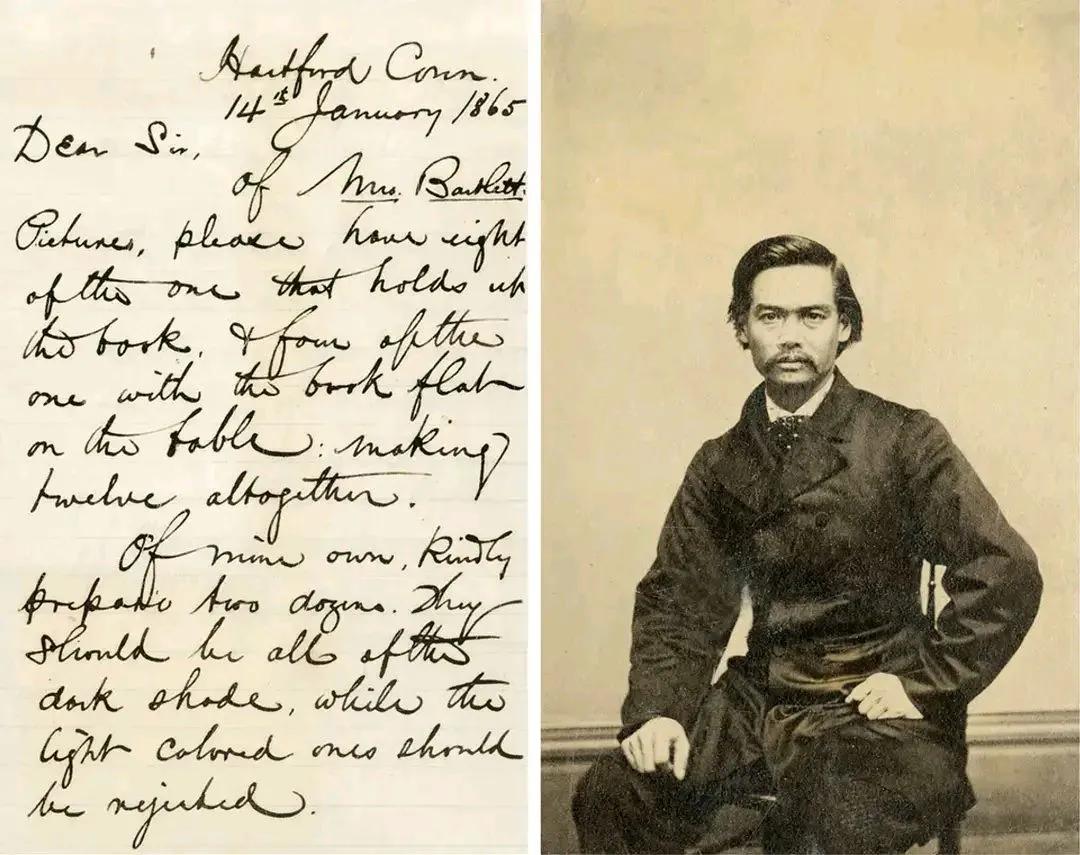 Hartford Conn.
14th January 1865
Dear Sir,
Of Mrs. Bartlett
Pictures, please have eight
of the one that holds up
the book, & four of the
one with the book flat
on the table: making
twelve altogether.
Of mine own, kindly
prepare two dozens. They
should be all of the
dark shade, while the
light colored ones should
be rejected.